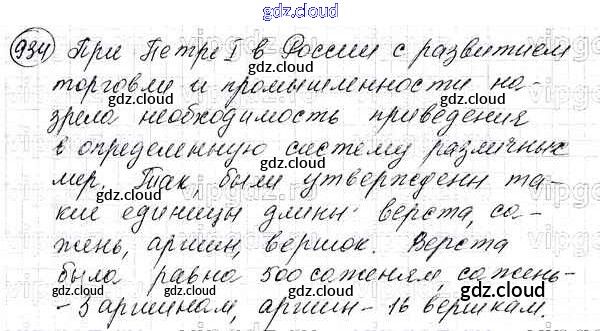 gdz.cloud
934 При Петре I в России с развитием
торговли и промышленности на-
зрела необходимость приведения
в определенную систему различных
мер. Так были утверждены та-
кие единицы длины: верста, са-
жень, аршин, вершок. Верста
была равна 500 саженям, сажень-
- 3 аршинам, аршин - 16 вершкам.